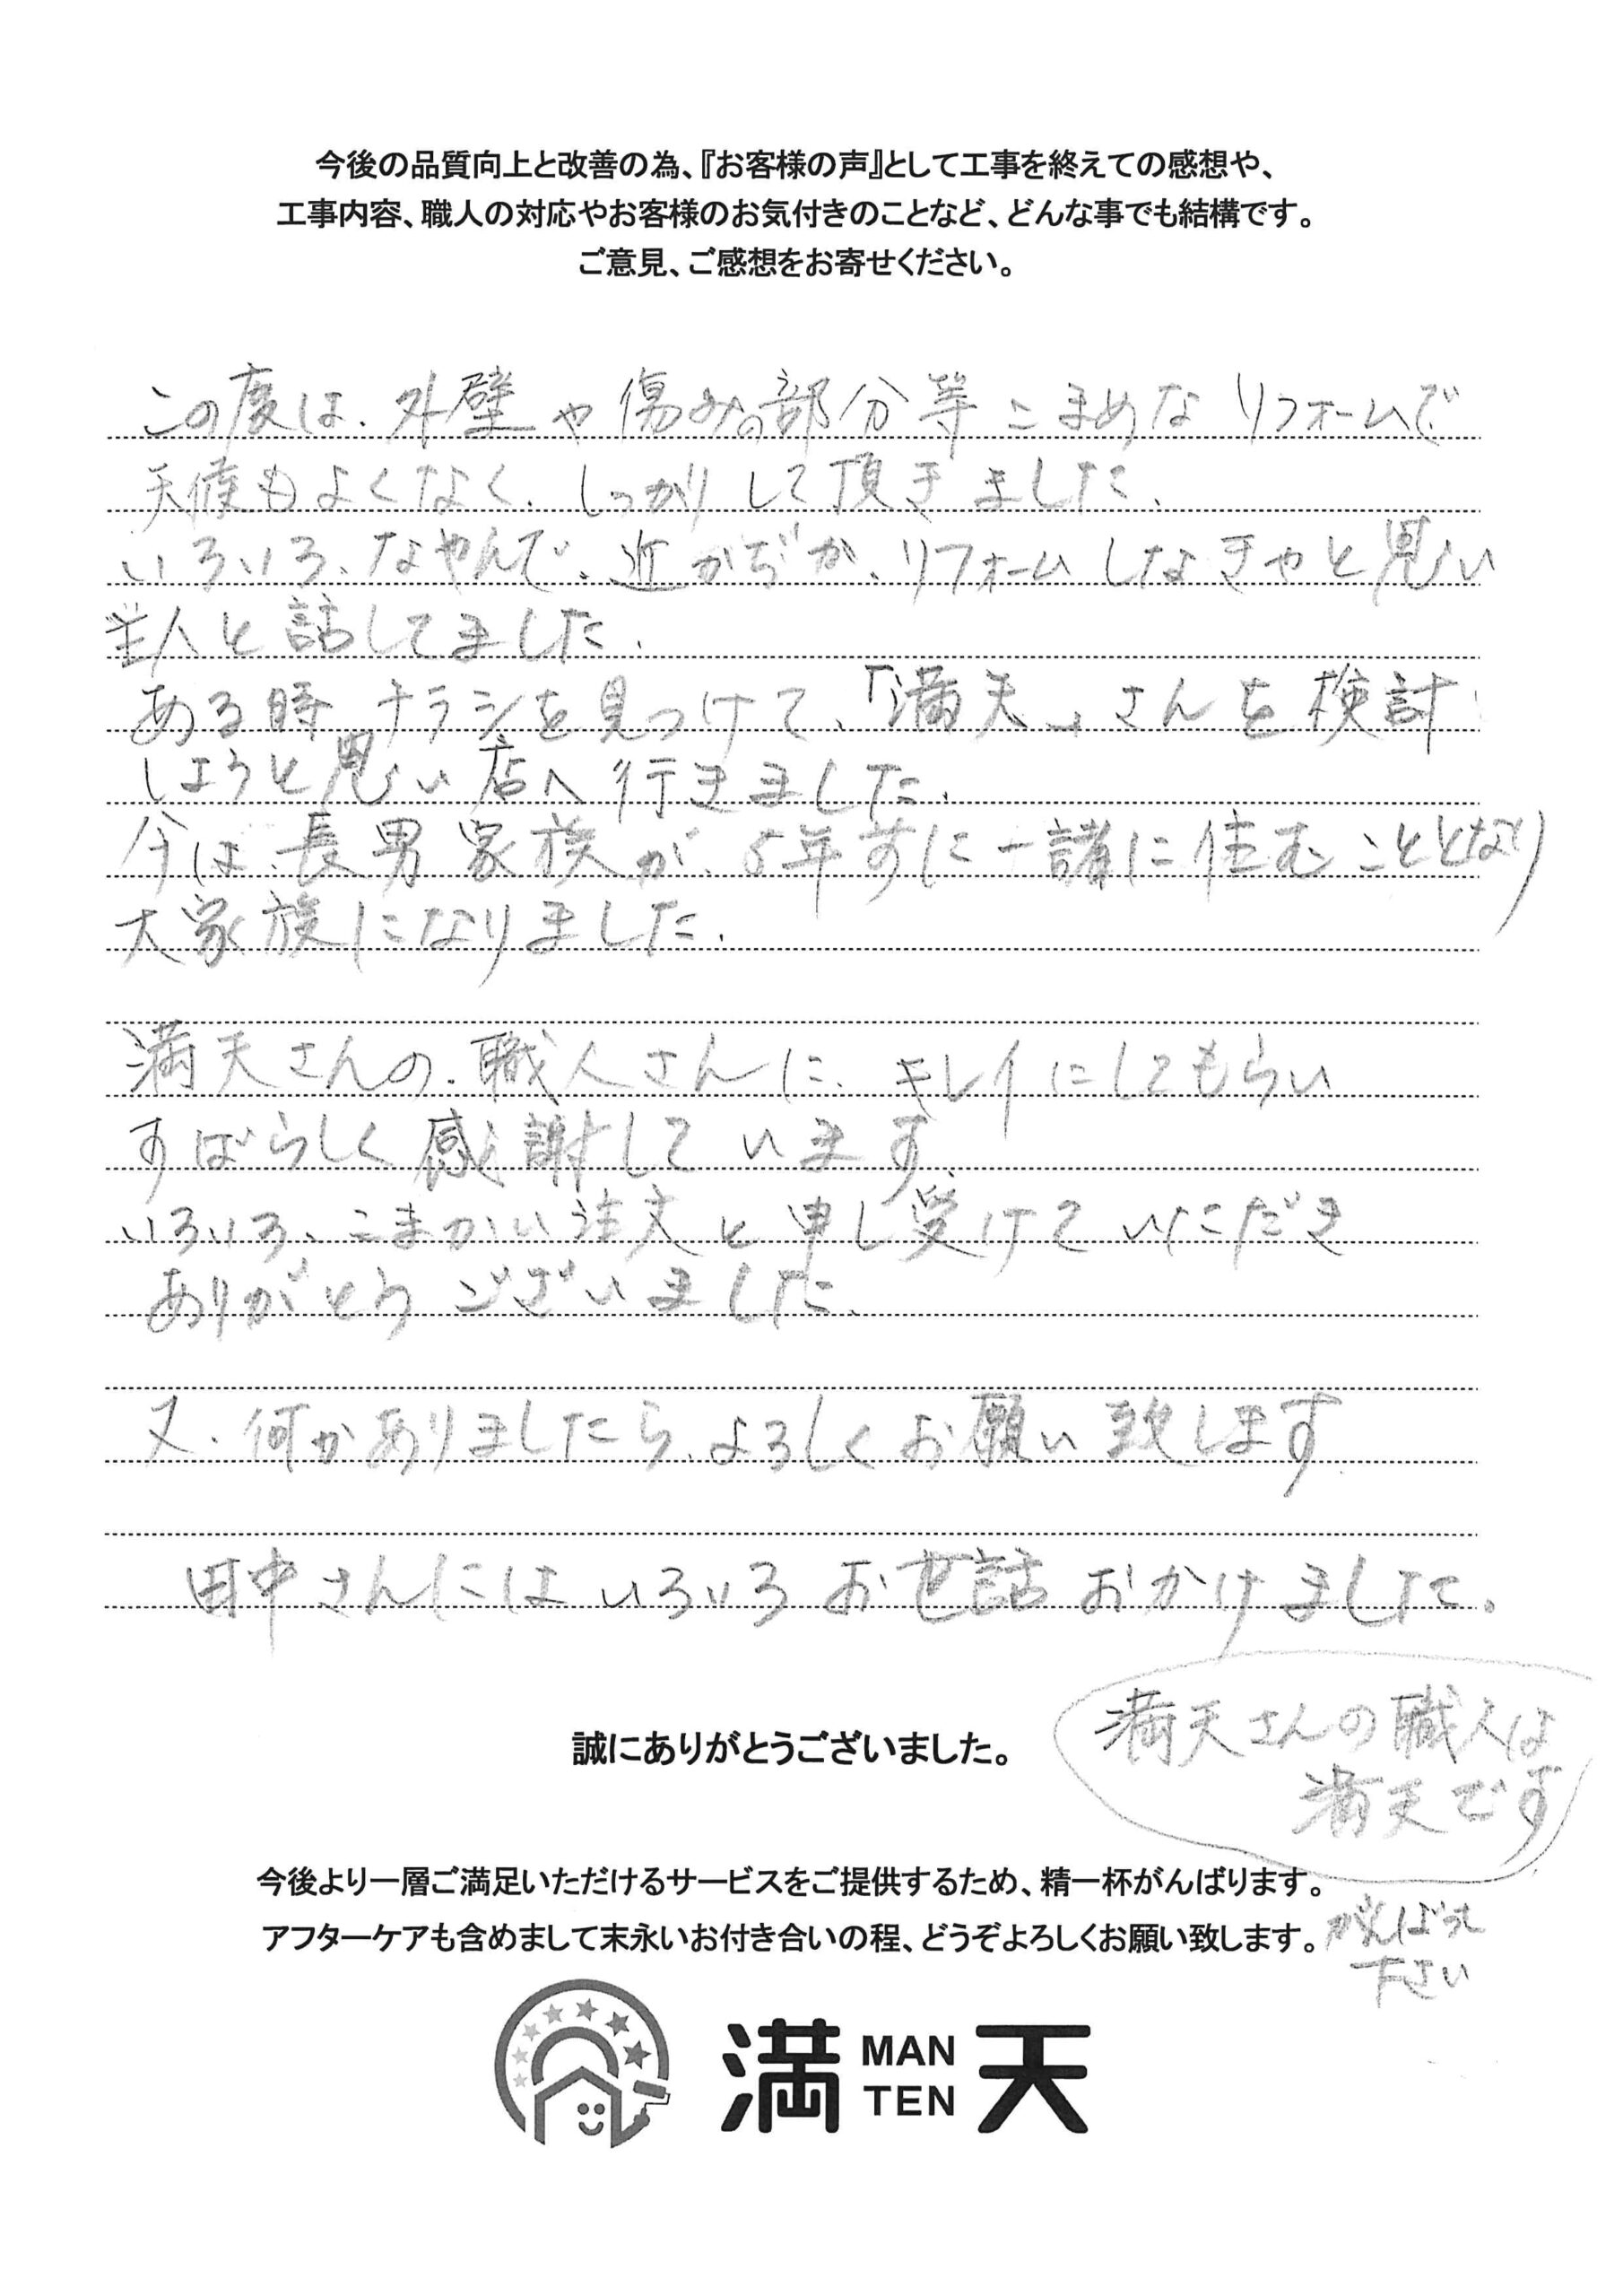 今後の品質向上と改善の為、『お客様の声』として工事を終えての感想や、
工事内容、職人の対応やお客様のお気付きのことなど、どんな事でも結構です。
ご意見、ご感想をお寄せください。
この度は、外壁や傷みの部分等こまめなリフォームで
天候もよくなく、しっかりして頂きました、
いろいろ、なやんで、近かぢか、リフォームしなきゃと思い
主人と話してました、
ある時チラシを見つけて、「満天」さんを検討
しようと思い店へ行きました、
今は、長男家族が、5年前に一諸に住むこととなり
大家族になりました、
満天さんの、職人さんに、キレイにしてもらい
すばらしく感謝しています、
いろいろ、こまかい注文と申し受けていただき
ありがとうございました、
又、何かありましたら、よろしくお願い致します
田中さんにはいろいろお世話おかけました。
誠にありがとうございました。
満天さんの職人は
満天です
今後より一層ご満足いただけるサービスをご提供するため、精一杯がんばります。
アフターケアも含めまして末永いお付き合いの程、どうぞよろしくお願い致します。
がんばって
下さい
満天
MAN
TEN